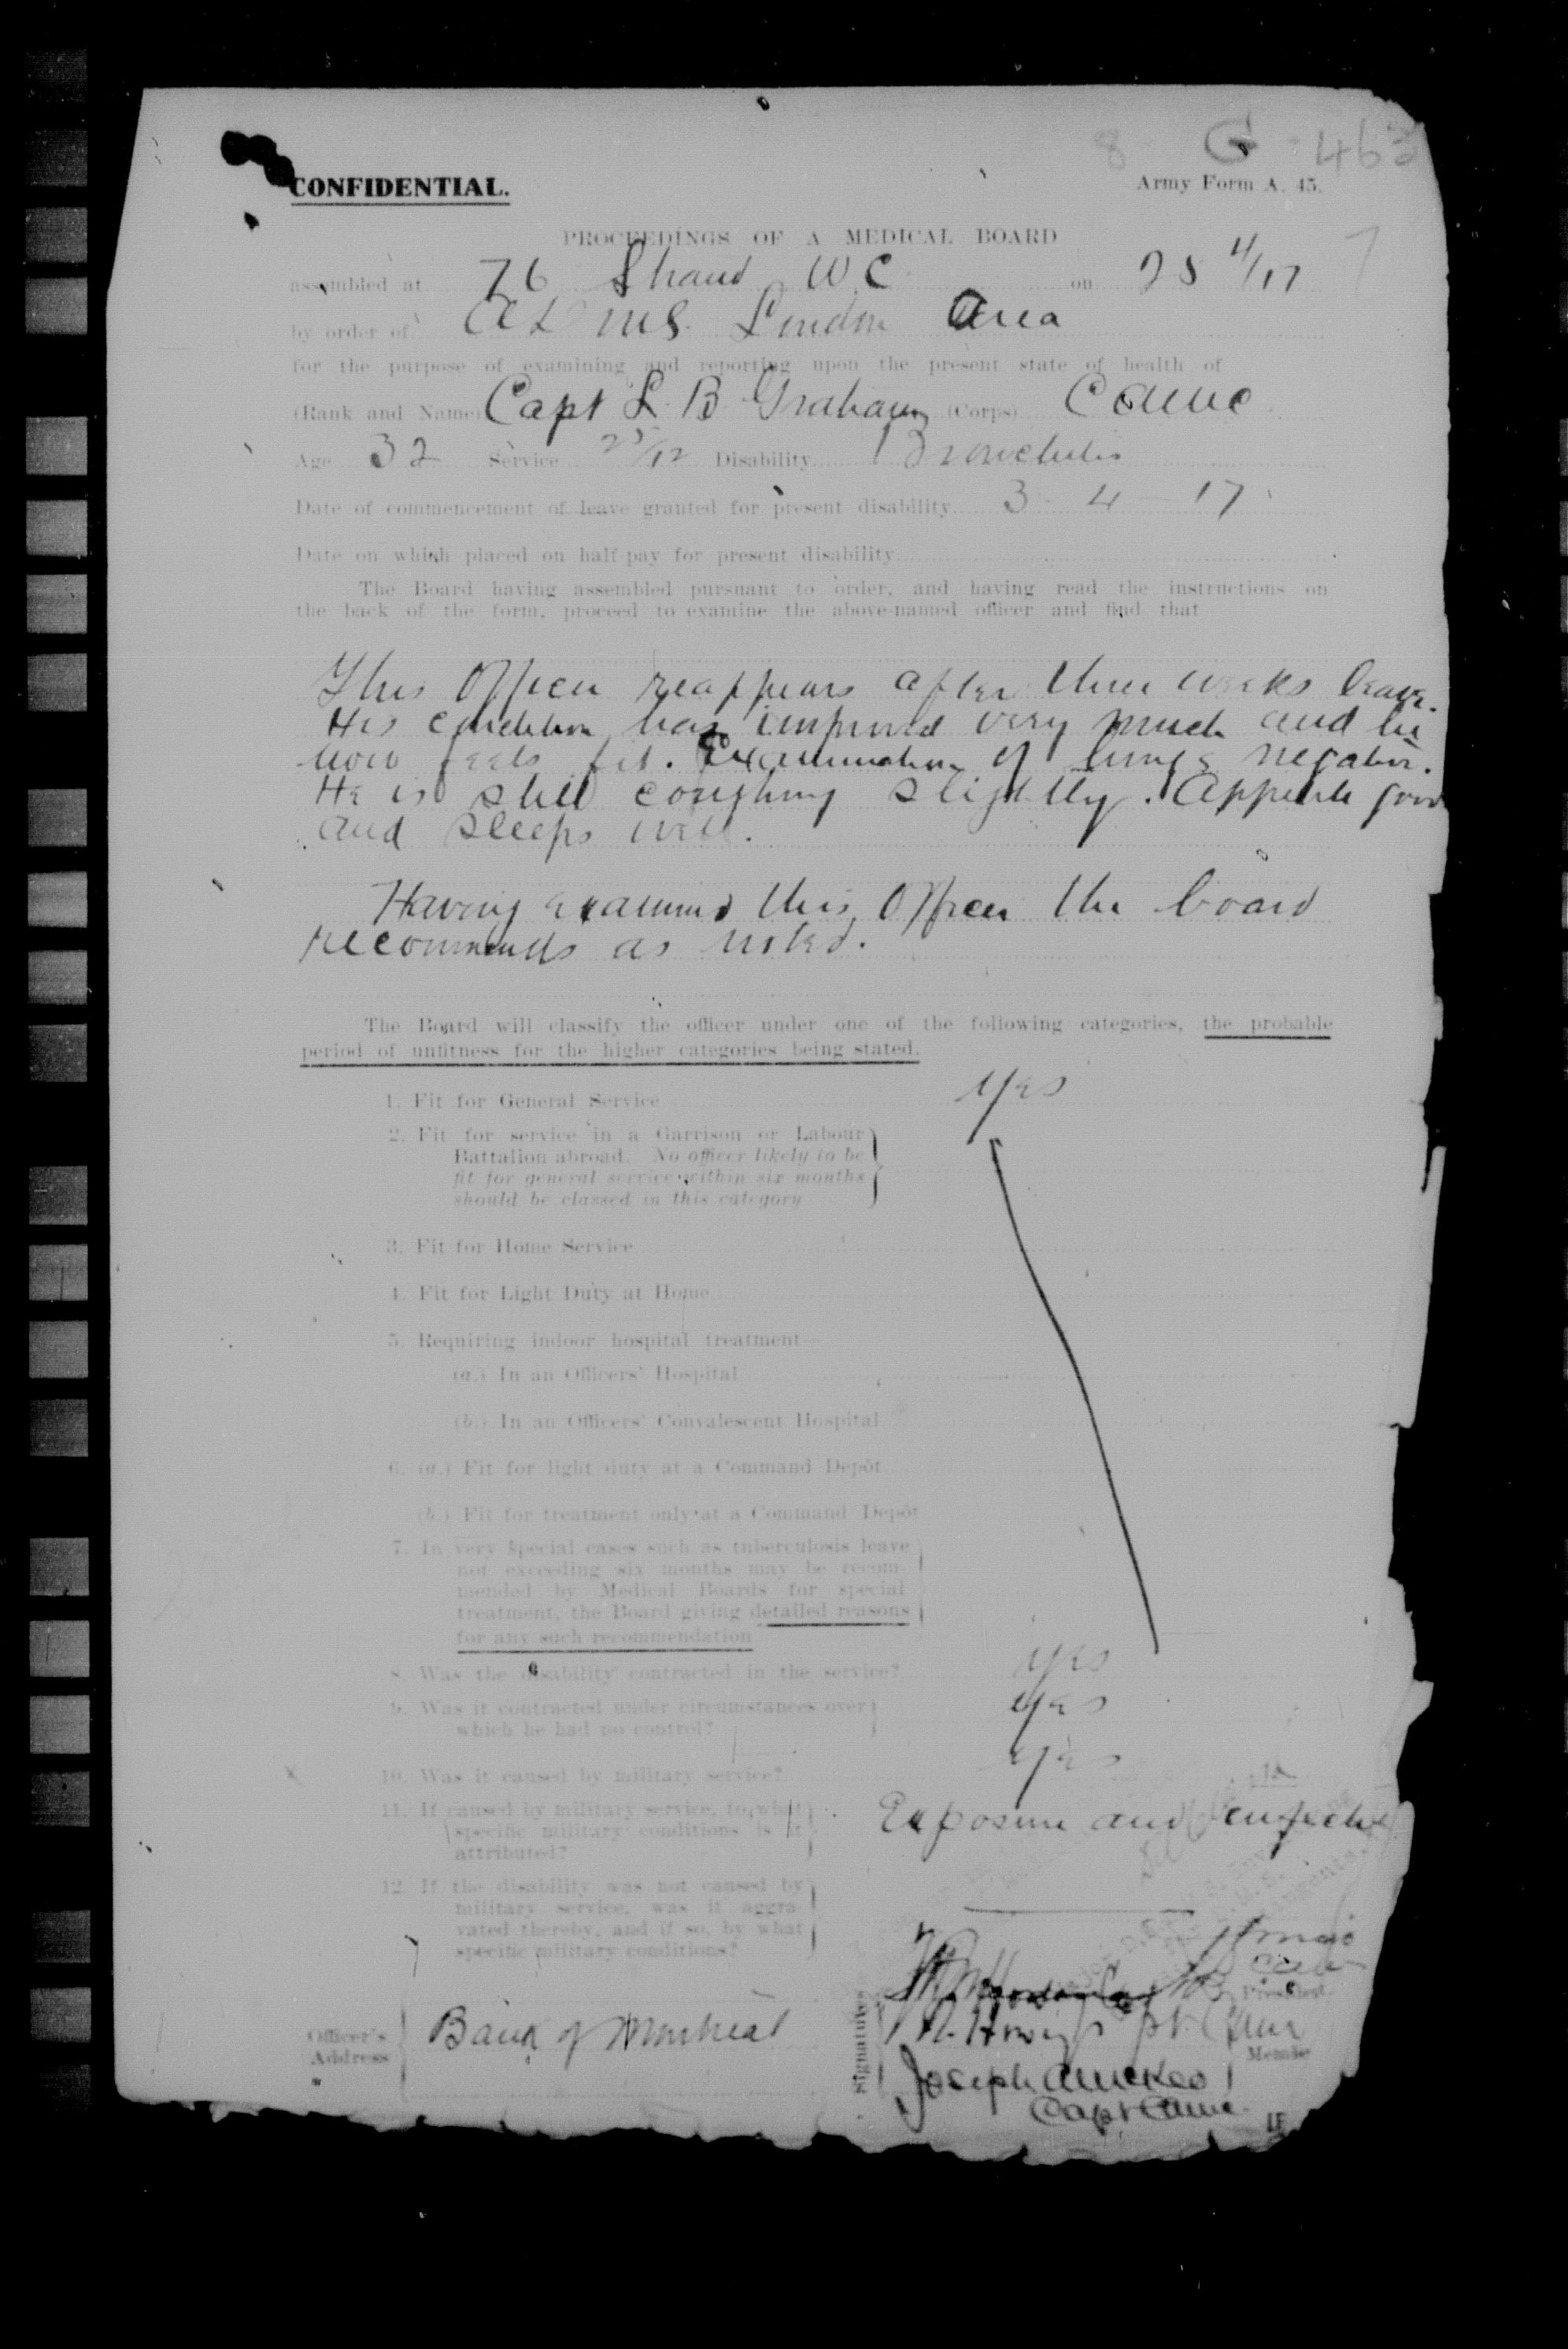 G 463
CONFIDENTIAL.
Army Form A. 45.
PROCEEDINGS OF A MEDICAL BOARD
assembled at 76 Strand W C on 25 4/17
by order of ADMS. London Area
for the purpose of examining and reporting upon the present state of health of
(Rank and Name) Capt L. B Graham (Corps) CAMC
Age 32 Service 25/12 Disability Bronchitis
Date of commencement of leave granted for present disability 3 - 4 - 17
Date on which placed on half-pay for present disability
The Board having assembled pursuant to order, and having read the instructions on
the back of the form, proceed to examine the above-named officer and find that
This Officer reappears after three weeks leave.
His condition has improved very much and he
now feels fit. Examination of lungs negative.
He is still coughing slightly. Appetite good
and sleeps well.
Having examined this Officer the board
recommends as noted.
The Board will classify the officer under one of the following categories, the probable
period of unfitness for the higher categories being stated.
1. Fit for General Service yes
2. Fit for service in a Garrison or Labour
Battalion abroad. No officer likely to be
fit for general service within six months
should be classed in this category
3. Fit for Home Service
4. Fit for Light Duty at Home
5. Requiring indoor hospital treatment—
(a.) In an Officers' Hospital
(b.) In an Officers' Convalescent Hospital
6. (a.) Fit for light duty at a Command Depôt
(b.) Fit for treatment only at a Command Depôt
7. In very special cases such as tuberculosis leave
not exceeding six months may be recom-
mended by Medical Boards for special
treatment, the Board giving detailed reasons
for any such recommendation
8. Was the disability contracted in the service? yes
9. Was it contracted under circumstances over
which he had no control? yes
10. Was it caused by military service? yes
11. If caused by military service, to what
specific military conditions is it
attributed? Exposure and infection
12. If the disability was not caused by
military service, was it aggra-
vated thereby, and if so, by what
specific military conditions?
Officer's
Address
Bank of Montreal
Signatures
President.
Member
Joseph
Capt CAMC.